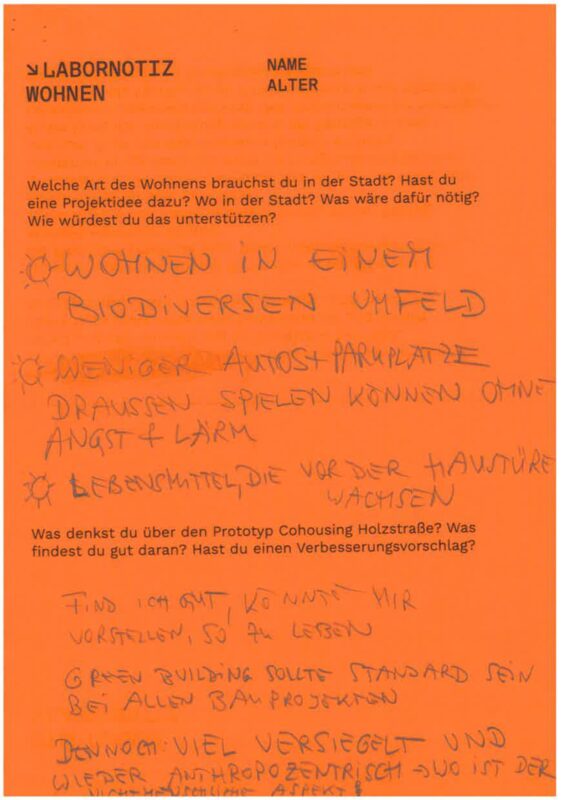 ↘ LABORNOTIZ
WOHNEN
NAME
ALTER
Welche Art des Wohnens brauchst du in der Stadt? Hast du
eine Projektidee dazu? Wo in der Stadt? Was wäre dafür nötig?
Wie würdest du das unterstützen?
WOHNEN IN EINEM
BIODIVERSEN UMFELD
WENIGER AUTOS + PARKPLÄTZE
DRAUSSEN SPIELEN KÖNNEN OHNE
ANGST + LÄRM
LEBENSMITTEL, DIE VOR DER HAUSTÜRE
WACHSEN
Was denkst du über den Prototyp Cohousing Holzstraße? Was
findest du gut daran? Hast du einen Verbesserungsvorschlag?
FIND ICH GUT, KÖNNTE MIR
VORSTELLEN, SO ZU LEBEN
GREEN BUILDING SOLLTE STANDARD SEIN
BEI ALLEN BAUPROJEKTEN
DENNOCH: VIEL VERSIEGELT UND
WIEDER ANTHROPOZENTRISCH → WO IST DER
NICHTMENSCHLICHE ASPEKT?